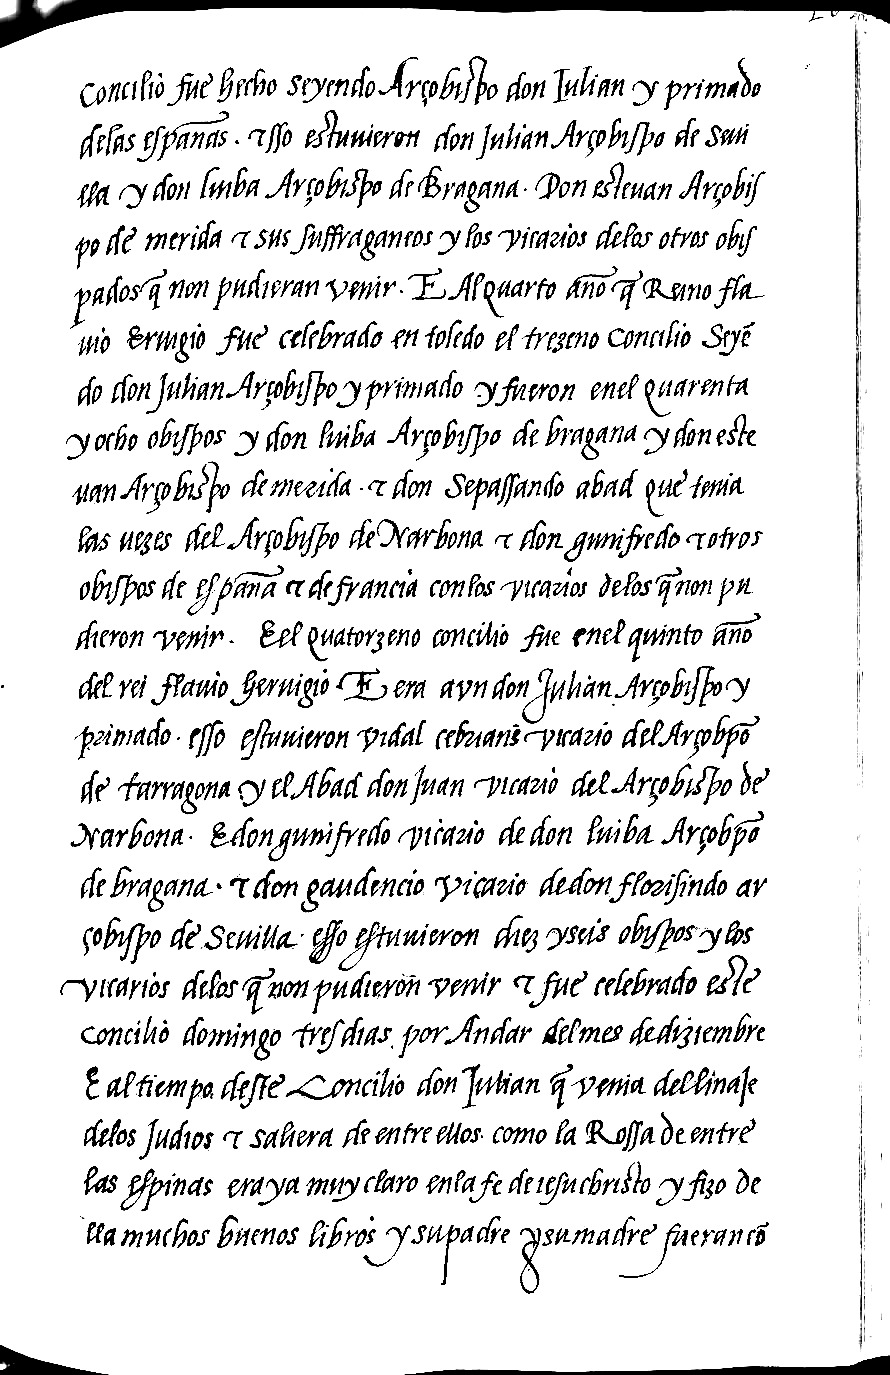 concilio fue hecho seyendo Arçobispo don Julian y primado
delas españas. τ esso estuuieron don Julian Arçobispo de Seui
lla y don luiba Arçobispo de Bragana. Don esteuan Arçobis
po de merida τ sus suffraganeos y los vicarios delos otros obis
pados q̃ non pudieran venir. E Al Quarto año q̃ Reino fla
uio Eruigio fue celebrado en toledo el trezeno Concilio Seyẽ
do don Julian Arçobispo y primado y fueron enel quarenta
y ocho obispos y don luiba Arçobispo de bragana y don este
uan Arçobispo de merida. τ don Sepassando abad que tenia
las uezes del Arçobispo de Narbona τ don gunifredo τ otros
obispos de españa τ de francia con los vicarios delos q̃ non pu
dieron venir. E el quatorzeno concilio fue enel quinto año
del rei flauio heruigio. E era avn don Julian Arçobispo y
primado. esso estuuieron vidal cebrians vicario del Arçobpõ
de tarragona y el Abad don Juan vicario del Arçobispo de
Narbona. E don gunifredo vicario de don luiba Arçobpõ
de bragana. τ don gaudencio vicario de don florisindo ar
çobispo de Seuilla. esso estuuieron diez y seis obispos y los
vicarios delos q̃ non pudieron venir τ fue celebrado este
concilio domingo tres dias por Andar del mes de diziembre
E al tiempo deste Concilio don Julian q̃ venia del linaje
delos Judios τ saliera de entre ellos como la Rossa de entre
las espinas era ya muy claro en la fe de iesu christo y fizo de
lla muchos buenos libros y su padre y su madre fueran cõ